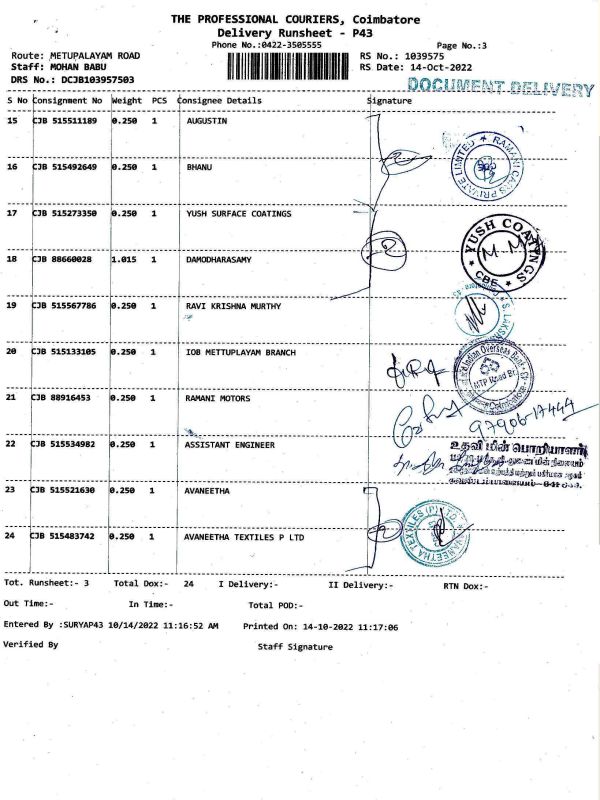 THE PROFESSIONAL COURIERS, Coimbatore
Delivery Runsheet - P43
Phone No.:0422-3505555
Page No.:3
Route: METUPALAYAM ROAD
RS No.: 1039575
Staff: MOHAN BABU
RS Date: 14-Oct-2022
DRS No.: DCJB103957503
DOCUMENT DELIVERY
S No Consignment No Weight PCS Consignee Details Signature
15 CJB 515511189 0.250 1 AUGUSTIN
RAMANI CARS PRIVATE LIMITED
16 CJB 515492649 0.250 1 BHANU
17 CJB 515273350 0.250 1 YUSH SURFACE COATINGS
YUSH COATINGS
CBE
18 CJB 88660028 1.015 1 DAMODHARASAMY
19 CJB 515567786 0.250 1 RAVI KRISHNA MURTHY
20 CJB 515133105 0.250 1 IOB METTUPLAYAM BRANCH
Indian Overseas Bank
MTP Road Br.
Coimbatore
21 CJB 88916453 0.250 1 RAMANI MOTORS
97906-17444
22 CJB 515534982 0.250 1 ASSISTANT ENGINEER
உதவி மின் பொறியாளர்
23 CJB 515521630 0.250 1 AVANEETHA
24 CJB 515483742 0.250 1 AVANEETHA TEXTILES P LTD
AVANEETHA TEXTILES (P) LTD
Tot. Runsheet:- 3 Total Dox:- 24 I Delivery:- II Delivery:- RTN Dox:-
Out Time:- In Time:- Total POD:-
Entered By :SURYAP43 10/14/2022 11:16:52 AM Printed On: 14-10-2022 11:17:06
Verified By Staff Signature